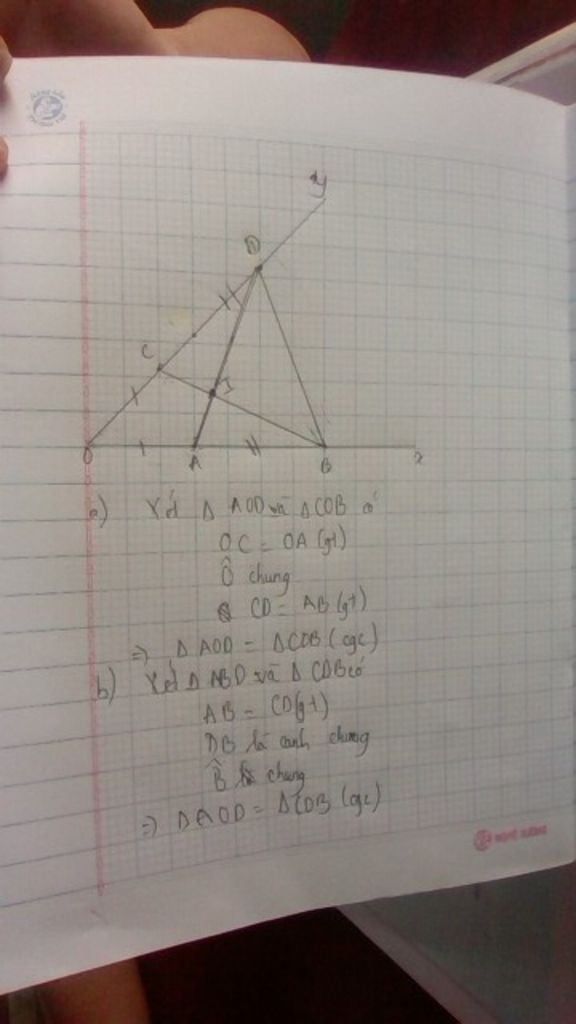 y
D
C
I
O
A
B
x
a) Xét Δ AOD và Δ COB có
OC = OA (gt)
Ô chung
CD = AB (gt)
=> Δ AOD = Δ COB (cgc)
b) Xét Δ ABD và Δ CDB có
AB = CD (gt)
DB là cạnh chung
B̂ là chung
=> Δ AOD = Δ COB (cgc)